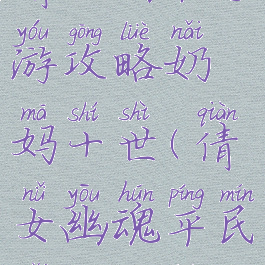 yóu gōng lüè nǎi
游攻略奶
mā shí shì qiàn
妈十世(倩
nǚ yōu hún píng mín
女幽魂平民